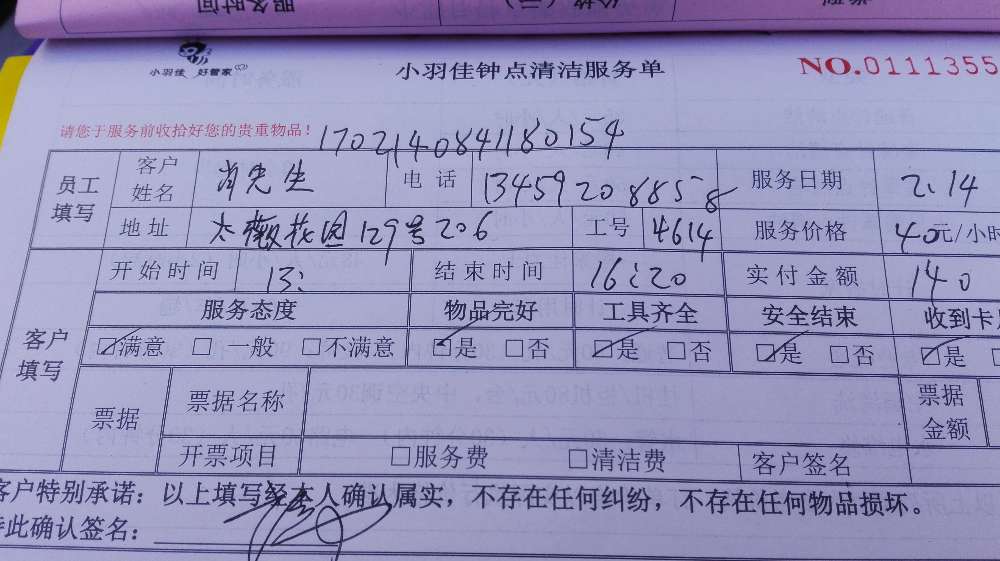 服务时间 价格（元） 票据
小羽佳 好管家 小羽佳钟点清洁服务单 NO.0111355
请您于服务前收拾好您的贵重物品！ 1702140841180154
员工填写 客户姓名 肖先生 电话 13459208858 服务日期 2.14
地址 大薇花园129号206 工号 4614 服务价格 40元/小时
客户填写 开始时间 13: 结束时间 16:20 实付金额 140
服务态度 物品完好 工具齐全 安全结束 收到卡
☑满意 □一般 □不满意 ☑是 □否 ☑是 □否 ☑是 □否 ☑是
票据 票据名称 票据金额
开票项目 □服务费 □清洁费 客户签名
客户特别承诺：以上填写经本人确认属实，不存在任何纠纷，不存在任何物品损坏。
特此确认签名：